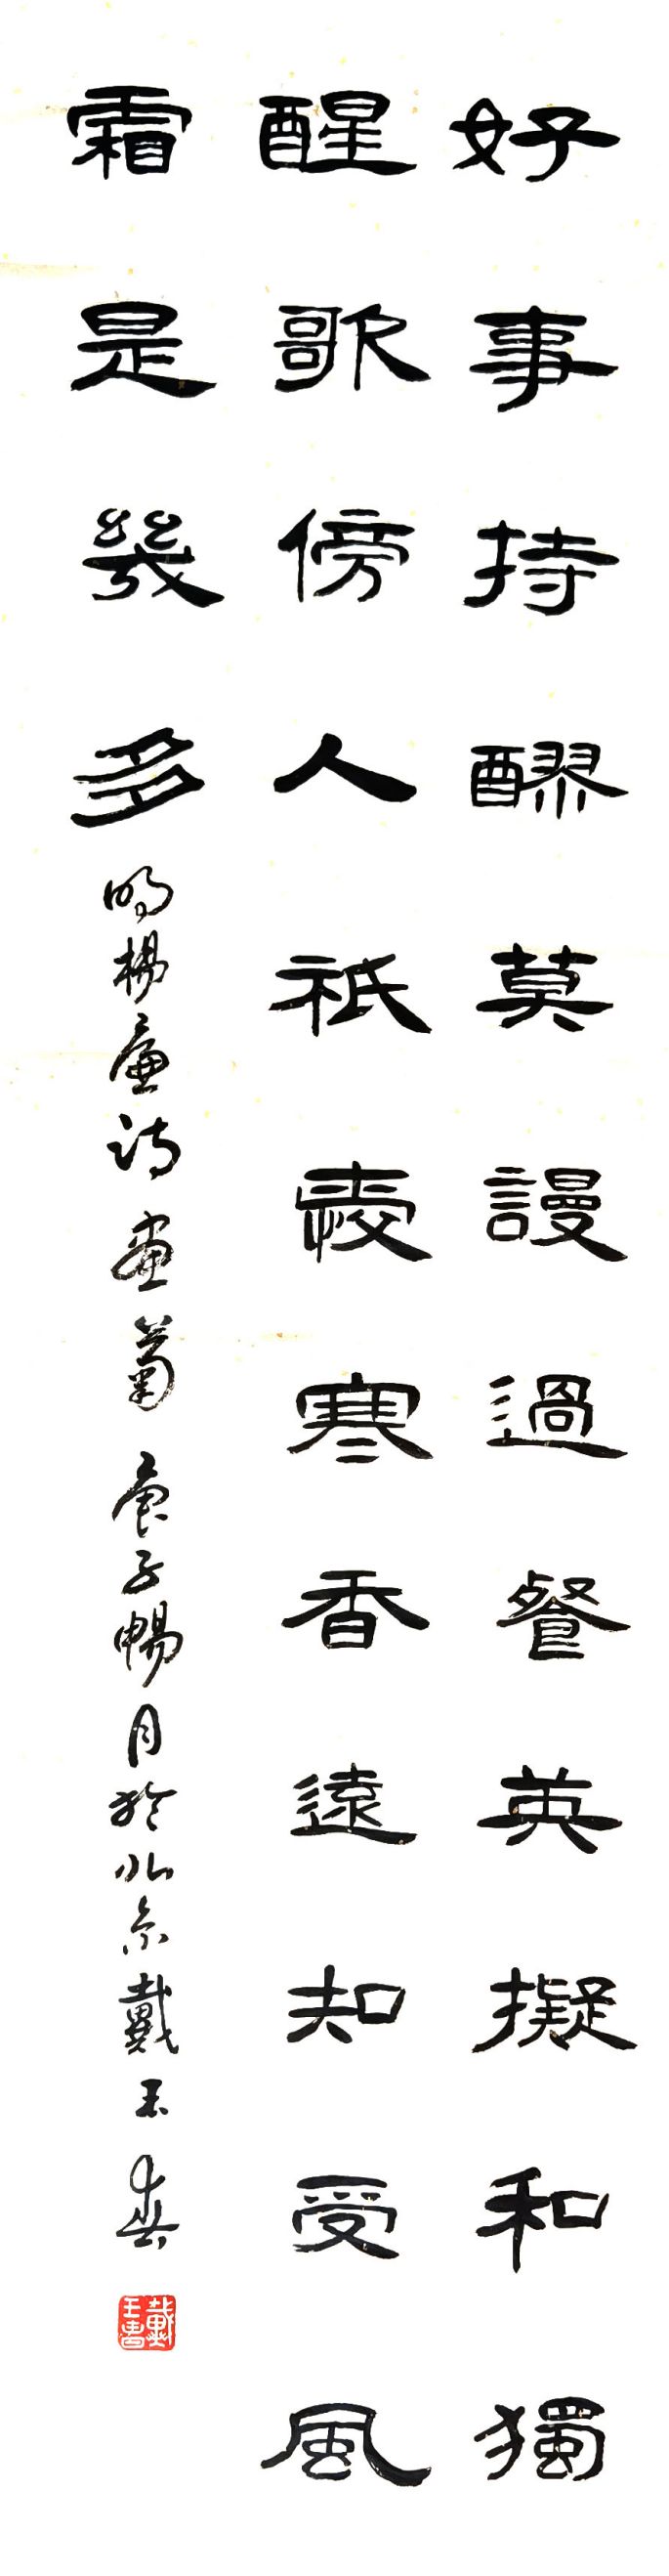 好事持醪莫謾過餐英擬和獨
醒歌傍人祇愛寒香遠知受風
霜是幾多
明楊廉诗画菊庚子暢月於北京戴玉春
戴玉春